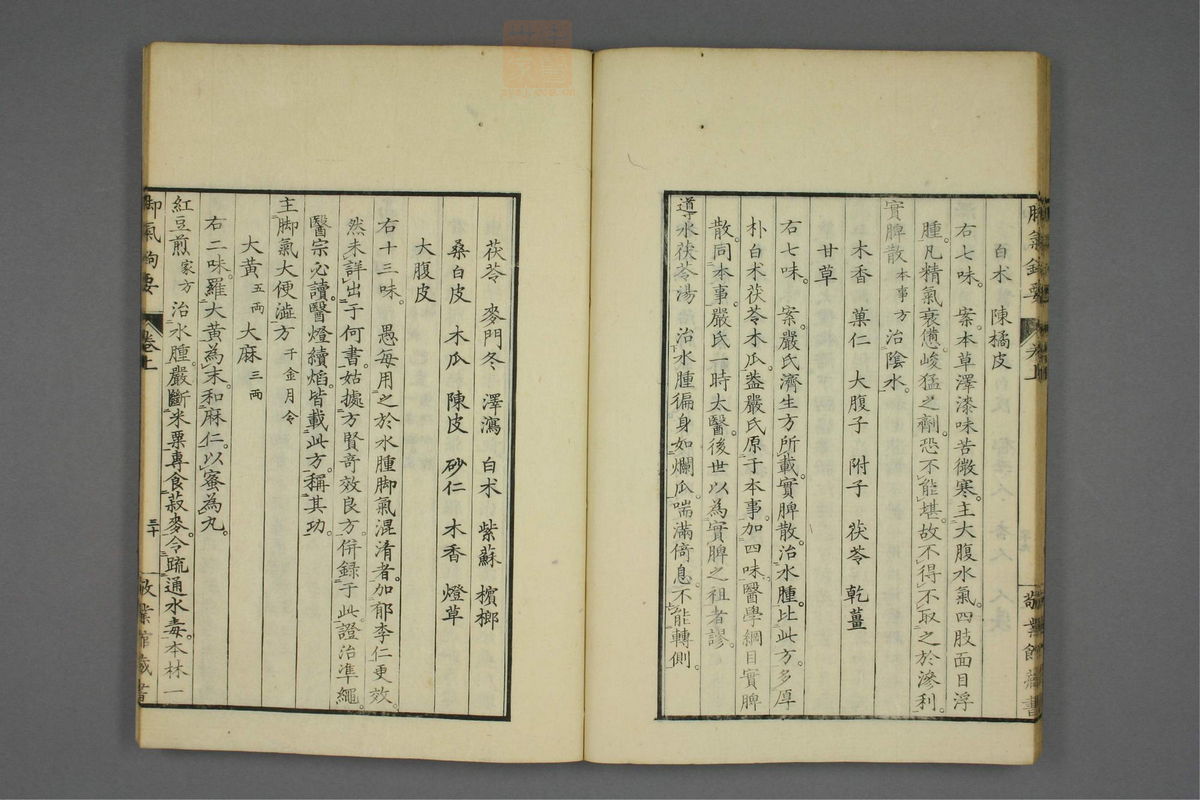 脚氣鉤要 卷上 敬業館藏書
白朮 陳橘皮
右七味。案。本草澤漆味苦微寒。主大腹水氣。四肢面目浮
腫。凡精氣衰憊。峻猛之劑。恐不能堪。故不得不取之於滲利。
實脾散 本事方 治陰水。
木香 菓仁 大腹子 附子 茯苓 乾薑
甘草
右七味。案。嚴氏濟生方所載。實脾散。治水腫。比此方。多厚
朴白朮茯苓木瓜。蓋嚴氏原于本事。加四味。醫學綱目實脾
散。同本事。嚴氏一時太醫。後世以為實脾之祖者謬。
導水茯苓湯 治水腫徧身如爛瓜。喘滿倚息。不能轉側。
茯苓 麥門冬 澤瀉 白朮 紫蘇 檳榔
桑白皮 木瓜 陳皮 砂仁 木香 燈草
大腹皮
右十三味。愚每用之於水腫脚氣混淆者。加郁李仁更效。
然未詳出于何書。姑據方賢奇效良方。併録于此。證治準繩。
醫宗必讀。醫燈續焰。皆載此方。稱其功。
主脚氣大便澁方 千金月令
大黄 五兩 大麻 三兩
右二味。羅大黄為末。和麻仁。以蜜為丸。
紅豆煎 家方 治水腫。嚴斷米粟。專食菽麥。令疏通水毒。本林一
脚氣鉤要 卷上 三十 敬業館藏書